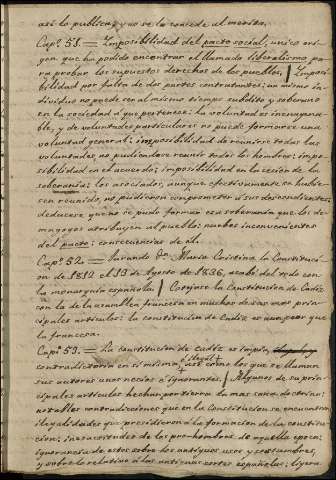 así lo publica; y no se la concede al mérito.
Cap.º 51. = Imposibilidad del pacto social, único orí-
gen que ha podido encontrar el llamado liberalismo pa-
ra probar los supuestos derechos de los pueblos. / Impo-
bilidad por falta de dos partes contratantes: un mismo in-
dividuo no puede ser al mismo tiempo subdito y soberano
en la sociedad a que pertenece: la voluntad es inenagena-
ble, y de voluntades particulares no puede formarse una
voluntad general: imposibilidad de reunirse todas las
voluntades, no pudiendose reunir todos los hombres: impo-
sibilidad en el acuerdo; imposibilidad en la cesion de la
soberanía: los asociados, aunque efectivamente se hubie-
sen reunido, no pudieron comprometer á sus descendientes:
deducese que no se pudo formar esa soberanía que los de-
magogos atribuyen al pueblo: nuebos inconvenientes
del pacto: consecuencias de el.
Cap.º 52. = Jurando D.ª María Cristina la Constituci-
on de 1812 el 13 de Agosto de 1836, acabó del todo con
la monarquía española / Cotejase la Constitucion de Cadiz
con la de la asamblea francesa en muchos de sus mas prin-
cipales artículos: la constitucion de Cadiz es aun peor que
la francesa.
Cap.º 53. = La constitucion de Cadiz es impía,
contradictoria en sí misma, é ilegal, así como los que se llaman
sus autores unos necios é ignorantes. / Algunos de sus prin-
cipales artículos hechan por tierra la mas sana doctrina:
notables contradicciones que en la Constitucion se encuentran
ilegalidades que presidieron a la formacion de la constitu-
cion; inexactitudes de los pro-hombres de aquella epoca;
ignorancia de estos sobre los antiguos usos y costumbres,
y sobre lo relativo á las antiguas cortes españolas; ligera